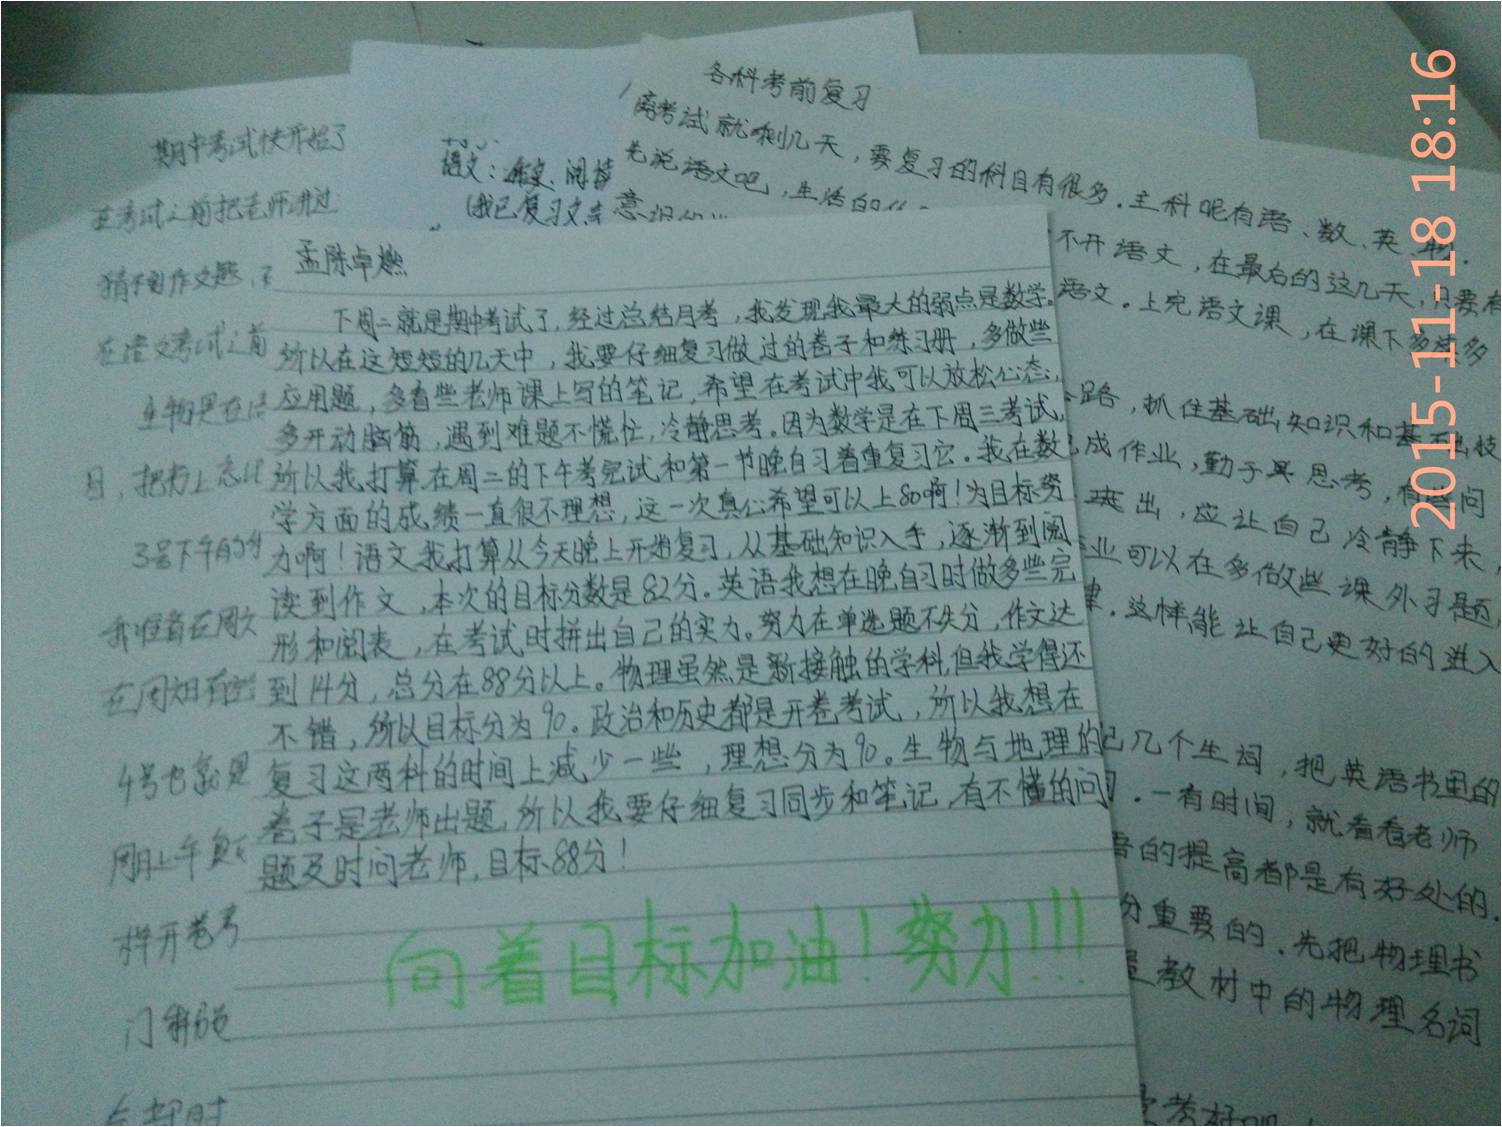 期中考试快开始了
在考试之前把老师讲过
猜不到作文题,
在语文考试之前
生物是在
目,把书上
3号下午的
我准备在周六
在周如有
4号也就是
周日上午
样开卷考
门
语文:
(我已复习文言
各科考前复习
离考试就剩几天,要复习的科目有很多.主科呢有语、数、英、物.
先说语文吧,生活的
不开语文,在最后的这几天,只要有
语文.上完语文课,在课下多读多
路,抓住基础知识和基
成作业,勤于思考,有
出,应让自己冷静下来,
业可以在多做些课外习题
律.这样能让自己更好的进入
记几个生词,把英语书里的
.一有时间,就看看老师
的提高都是有好处的.
分重要的.先把物理书
教材中的物理名词
孟陈卓燃
下周二就是期中考试了,经过总结月考,我发现我最大的弱点是数学。
所以在这短短的几天中,我要仔细复习做过的卷子和练习册,多做些
应用题,多看些老师课上写的笔记,希望在考试中我可以放松心态,
多开动脑筋,遇到难题不慌忙,冷静思考。因为数学是在下周三考试,
所以我打算在周二的下午考完试和第一节晚自习着重复习它。我在数
学方面的成绩一直很不理想,这一次真心希望可以上80啊!为目标努
力啊!语文我打算从今天晚上开始复习,从基础知识入手,逐渐到阅
读到作文,本次的目标分数是82分。英语我想在晚自习时做多些完
形和阅表,在考试时拼出自己的实力。努力在单选题不失分,作文达
到14分,总分在88分以上。物理虽然是新接触的学科,但我学得还
不错,所以目标分为90。政治和历史都是开卷考试,所以我想在
复习这两科的时间上减少一些,理想分为90。生物与地理的
卷子是老师出题,所以我要仔细复习同步和笔记,有不懂的问
题及时问老师,目标88分!
向着目标加油!努力!!!
2015-11-18 18:16